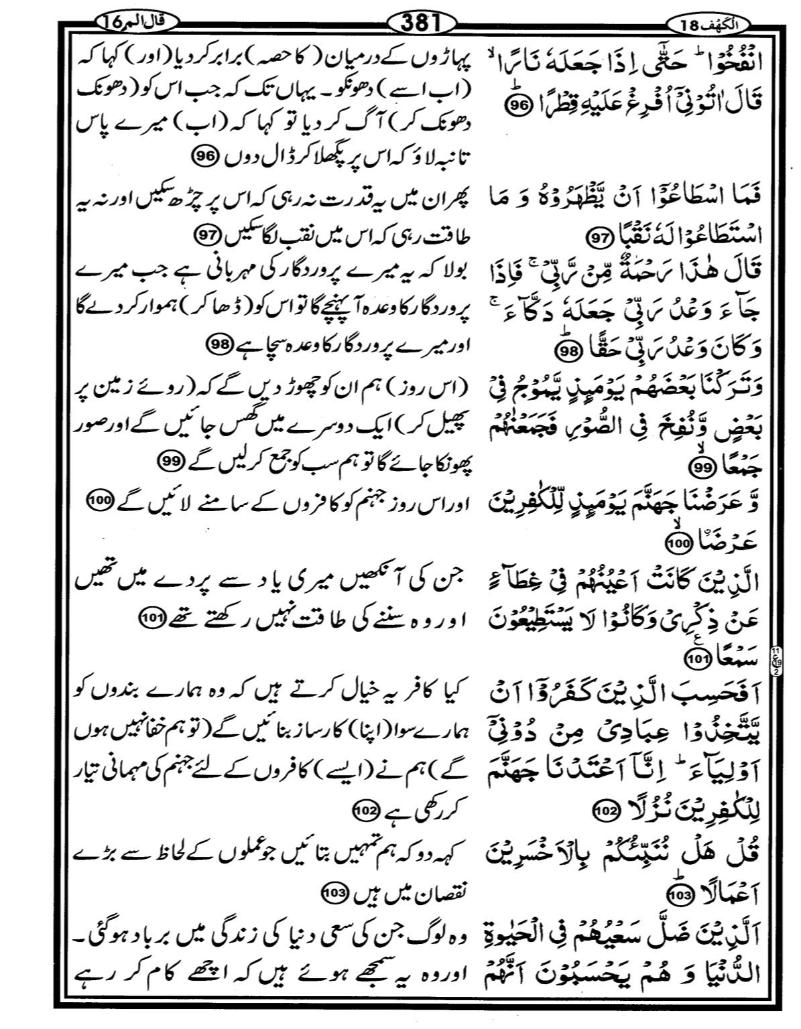 الکهف 18
381
قال الم 16
انْفُخُوْا ؕ حَتّٰۤى اِذَا جَعَلَهٗ نَارًا ۙ
قَالَ اٰتُوْنِیْۤ اُفْرِغْ عَلَیْهِ قِطْرًا ؕ 96
فَمَا اسْطَاعُوْۤا اَنْ یَّظْهَرُوْهُ وَ مَا
اسْتَطَاعُوْا لَهٗ نَقْبًا 97
قَالَ هٰذَا رَحْمَةٌ مِّنْ رَّبِّیْ ۚ فَاِذَا
جَآءَ وَعْدُ رَبِّیْ جَعَلَهٗ دَكَّآءَ ۚ
وَكَانَ وَعْدُ رَبِّیْ حَقًّا ؕ 98
وَتَرَكْنَا بَعْضَهُمْ یَوْمَىِٕذٍ یَّمُوْجُ فِیْ
بَعْضٍ وَّنُفِخَ فِی الصُّوْرِ فَجَمَعْنٰهُمْ
جَمْعًا ۙ 99
وَّ عَرَضْنَا جَهَنَّمَ یَوْمَىِٕذٍ لِّلْكٰفِرِیْنَ
عَرْضَا ۙ 100
الَّذِیْنَ كَانَتْ اَعْیُنُهُمْ فِیْ غِطَآءٍ
عَنْ ذِكْرِیْ وَكَانُوْا لَا یَسْتَطِیْعُوْنَ
سَمْعًا ع 101
اَفَحَسِبَ الَّذِیْنَ كَفَرُوْۤا اَنْ
یَّتَّخِذُوْا عِبَادِیْ مِنْ دُوْنِیْۤ
اَوْلِیَآءَ ؕ اِنَّاۤ اَعْتَدْنَا جَهَنَّمَ
لِلْكٰفِرِیْنَ نُزُلًا 102
قُلْ هَلْ نُنَبِّئُكُمْ بِالْاَخْسَرِیْنَ
اَعْمَالًا ؕ 103
اَلَّذِیْنَ ضَلَّ سَعْیُهُمْ فِی الْحَیٰوةِ
الدُّنْیَا وَ هُمْ یَحْسَبُوْنَ اَنَّهُمْ
پہاڑوں کے درمیان (کا حصہ) برابر کر دیا (اور) کہا کہ
(اب اسے) دھونکو۔ یہاں تک کہ جب اس کو (دھونک
دھونک کر) آگ کر دیا تو کہا کہ (اب) میرے پاس
تانبہ لاؤ کہ اس پر پگھلا کر ڈال دوں 96
پھر ان میں یہ قدرت نہ رہی کہ اس پر چڑھ سکیں اور نہ یہ
طاقت رہی کہ اس میں نقب لگا سکیں 97
بولا کہ یہ میرے پروردگار کی مہربانی ہے جب میرے
پروردگار کا وعدہ آ پہنچے گا تو اس کو (ڈھا کر) ہموار کر دے گا
اور میرے پروردگار کا وعدہ سچا ہے 98
(اس روز) ہم ان کو چھوڑ دیں گے کہ (روئے زمین پر
پھیل کر) ایک دوسرے میں گھس جائیں گے اور صور
پھونکا جائے گا تو ہم سب کو جمع کر لیں گے 99
اور اس روز جہنم کو کافروں کے سامنے لائیں گے 100
جن کی آنکھیں میری یاد سے پردے میں تھیں
اور وہ سننے کی طاقت نہیں رکھتے تھے 101
کیا کافر یہ خیال کرتے ہیں کہ وہ ہمارے بندوں کو
ہمارے سوا (اپنا) کارساز بنائیں گے (تو ہم خفا نہیں ہوں
گے) ہم نے (ایسے) کافروں کے لئے جہنم کی مہمانی تیار
کر رکھی ہے 102
کہہ دو کہ ہم تمہیں بتائیں جو عملوں کے لحاظ سے بڑے
نقصان میں ہیں 103
وہ لوگ جن کی سعی دنیا کی زندگی میں برباد ہو گئی۔
اور وہ یہ سمجھے ہوئے ہیں کہ اچھے کام کر رہے